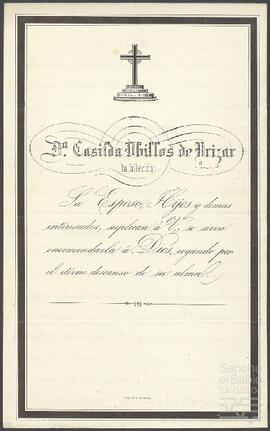 Dª. Casilda Ubillos de Urizar
ha fallecido:
Su Esposo, Hijos y demas
interesados, suplican á V. se sirva
encomendarla á Dios, rogando por
el eterno descanso de su alma.
Sancho
el Sabio
fundazioa